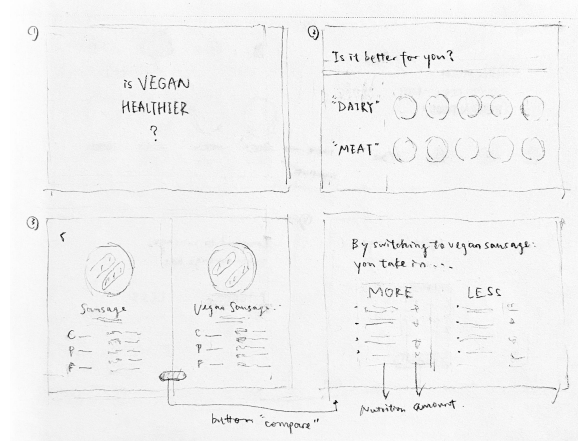 1)
is VEGAN
HEALTHIER
?
2
Is it better for you?
"DAIRY"
"MEAT"
3
Sausage
C
P
F
Vegan Sausage
C
P
F
button "compare"
By switching to vegan sausage:
you take in ...
MORE
LESS
Nutrition amount.